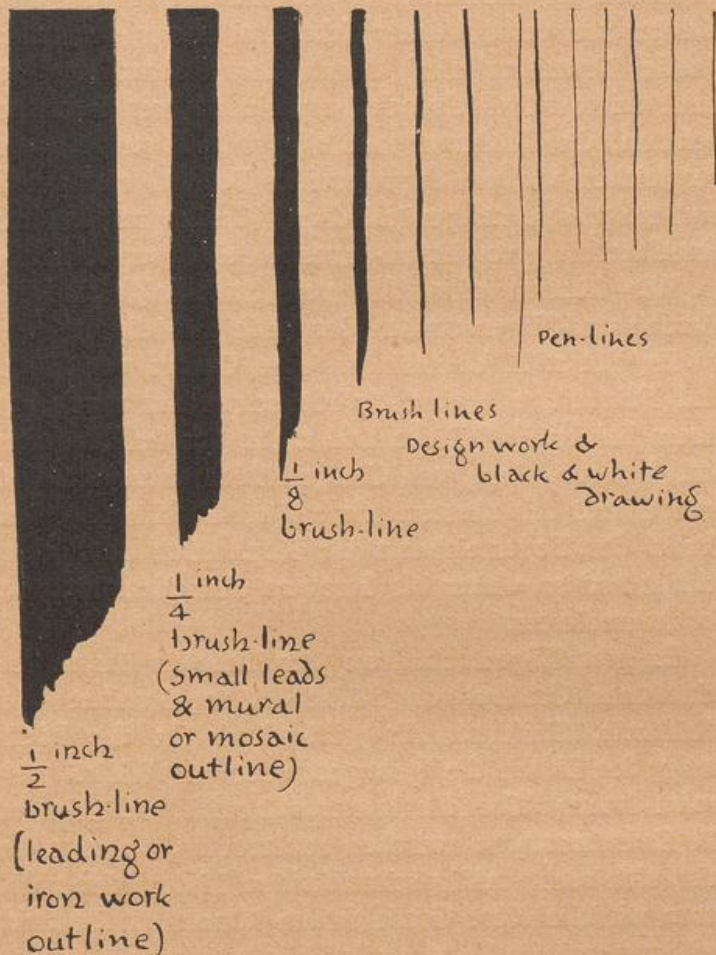 1/2 inch
brush-line
(leading or
iron work
outline)
1/4 inch
brush-line
(Small leads
& mural
or mosaic
outline)
1/8 inch
brush-line
Brush lines
Design work &
black & white
drawing
Pen-lines